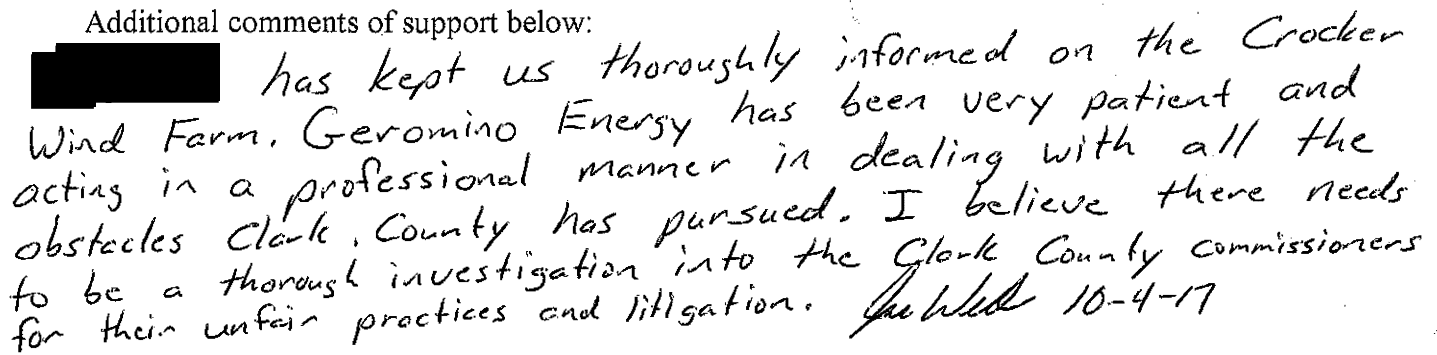 Additional comments of support below:
has kept us thoroughly informed on the Crocker
Wind Farm. Geromino Energy has been very patient and
acting in a professional manner in dealing with all the
obstacles Clark, County has pursued. I believe there needs
to be a thorough investigation into the Clark County commissioners
for their unfair practices and litigation. 10-4-17